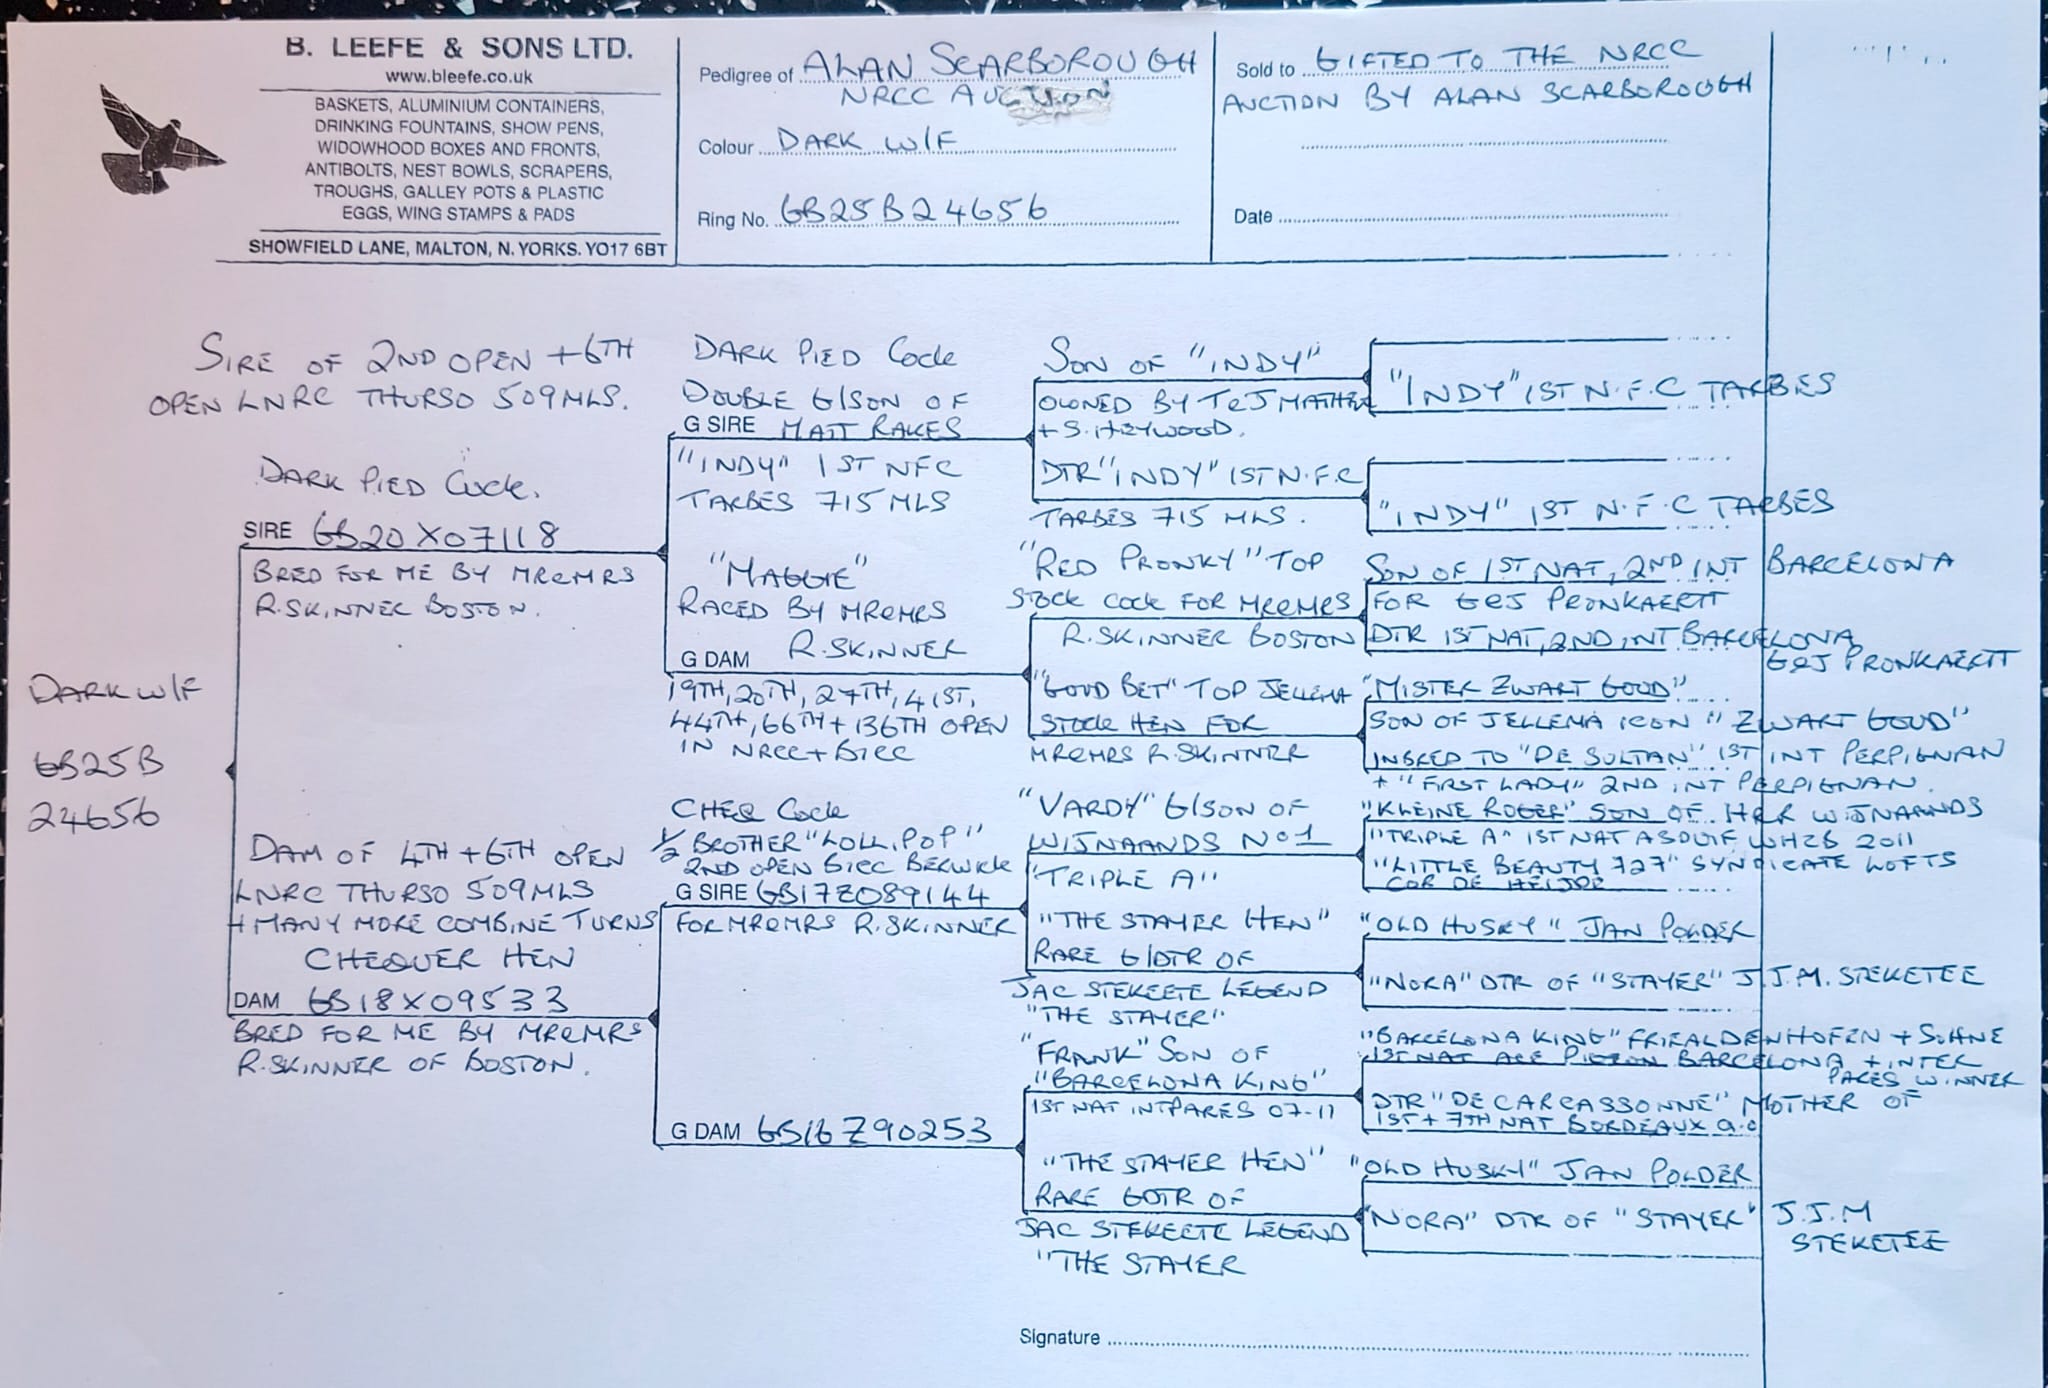 B. LEEFE & SONS LTD.
www.bleefe.co.uk
BASKETS, ALUMINIUM CONTAINERS,
DRINKING FOUNTAINS, SHOW PENS,
WIDOWHOOD BOXES AND FRONTS,
ANTIBOLTS, NEST BOWLS, SCRAPERS,
TROUGHS, GALLEY POTS & PLASTIC
EGGS, WING STAMPS & PADS
SHOWFIELD LANE, MALTON, N. YORKS. YO17 6BT
Pedigree of ALAN SCARBOROUGH
NRCC AUCTION
Colour DARK W/F
Ring No. GB25B24656
Sold to GIFTED TO THE NRCC
AUCTION BY ALAN SCARBOROUGH
Date
DARK W/F
GB25B
24656
SIRE OF 2ND OPEN + 6TH
OPEN LNRC THURSO 509MLS.
DARK PIED COCK.
SIRE GB20X07118
BRED FOR ME BY MR&MRS
R.SKINNER BOSTON.
DAM OF 4TH + 6TH OPEN
LNRC THURSO 509MLS
+ MANY MORE COMBINE TURNS
CHEQUER HEN
DAM GB18X09533
BRED FOR ME BY MR&MRS
R.SKINNER OF BOSTON.
DARK PIED COCK
DOUBLE G/SON OF
G SIRE MATT RAKES
"INDY" 1ST NFC
TARBES 715 MLS
"MAGGIE"
RACED BY MR&MRS
R.SKINNER
G DAM
19TH, 20TH, 27TH, 41ST,
44TH, 66TH + 136TH OPEN
IN NRCC + BICC
CHEQ COCK
1/2 BROTHER "LOLLIPOP"
2ND OPEN BICC BERWICK
G SIRE GB17Z089144
FOR MR&MRS R.SKINNER
G DAM GB16Z90253
SON OF "INDY"
OWNED BY T&J MATHER
+ S.HEYWOOD.
DTR "INDY" 1ST N.F.C
TARBES 715 MLS.
"RED PRONKY" TOP
STOCK COCK FOR MR&MRS
R.SKINNER BOSTON
"GOUD BET" TOP JELLEMA
STOCK HEN FOR
MR&MRS R.SKINNER
"VARDY" G/SON OF
WIJNAANDS NO1
"TRIPLE A"
"THE STAYER HEN"
RARE G/DTR OF
JAC STEKEETE LEGEND
"THE STAYER"
"FRANK" SON OF
"BARCELONA KING"
1ST NAT INTPARES 07-11
"THE STAYER HEN"
RARE GDTR OF
JAC STEKEETE LEGEND
"THE STAYER
"INDY" 1ST N.F.C TARBES
"INDY" 1ST N.F.C TARBES
SON OF 1ST NAT, 2ND INT BARCELONA
FOR G&J PRONKAERTT
DTR 1ST NAT, 2ND, INT BARCELONA
G&J PRONKAERTT
"MISTER ZWART GOUD"
SON OF JELLEMA ICON "ZWART GOUD"
INBRED TO "DE SULTAN" 1ST INT PERPIGNAN
+ "FIRST LADY" 2ND INT PERPIGNAN.
"KLEINE ROGER" SON OF H&R WIJNAANDS
"TRIPLE A" 1ST NAT ASDUIF WHZB 2011
"LITTLE BEAUTY 727" SYNDICATE LOFTS
COR DE HEIJDE
"OLD HUSKY" JAN POLDER
"NORA" DTR OF "STAYER" J.J.M. STEKETEE
"BARCELONA KING" FRIEALDENHOFEN + SOHNE
1ST NAT ACE PIGEON BARCELONA + INTER
PARES WINNER
DTR "DE CARCASSONNE" MOTHER OF
1ST + 7TH NAT BORDEAUX a.o
"OLD HUSKY" JAN POLDER
"NORA" DTR OF "STAYER" J.J.M
STEKETEE
Signature